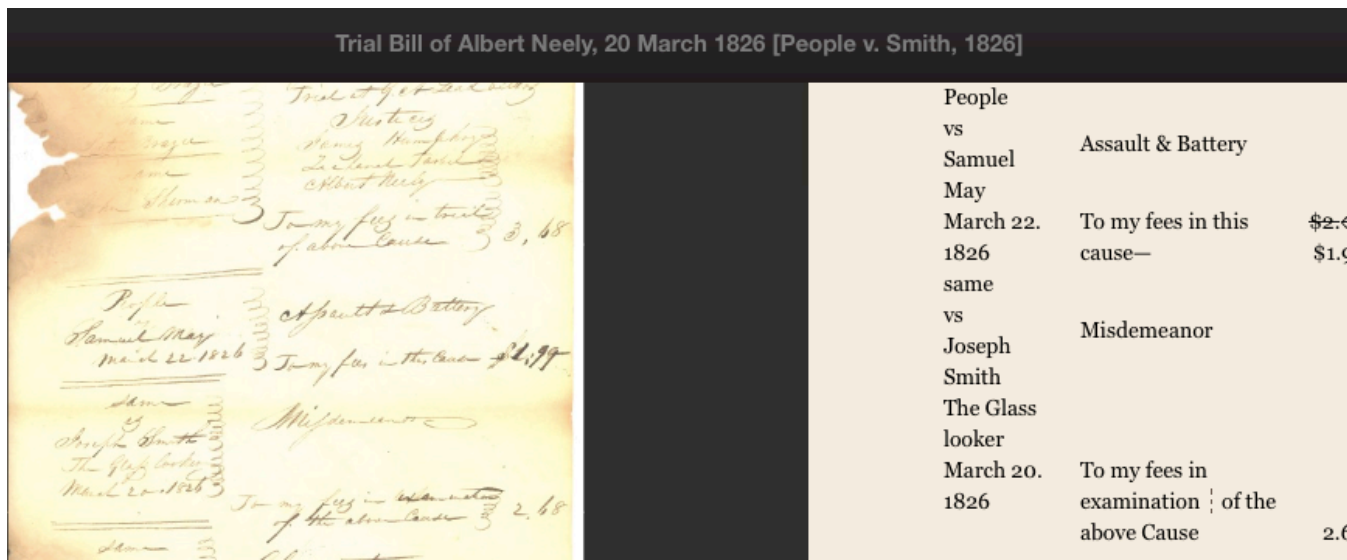 Trial Bill of Albert Neely, 20 March 1826 [People v. Smith, 1826]
same
same
Sherman
Trial at
Justices
James Humphrey
Zechariah Tarble
Albert Neely
To my fees in trial
of above Cause 3,68
People
Samuel May
March 22 1826
Assault & Battery
To my fees in this Cause $1.99
same
vs
Joseph Smith
The Glass looker
March 20 1826
Misdemeanor
To my fees in examination
of the above Cause 2.68
same
People
vs
Samuel
May
March 22.
1826
Assault & Battery
To my fees in this
cause—
$1.9
same
vs
Joseph
Smith
The Glass
looker
March 20.
1826
Misdemeanor
To my fees in
examination ¦ of the
above Cause
2.6